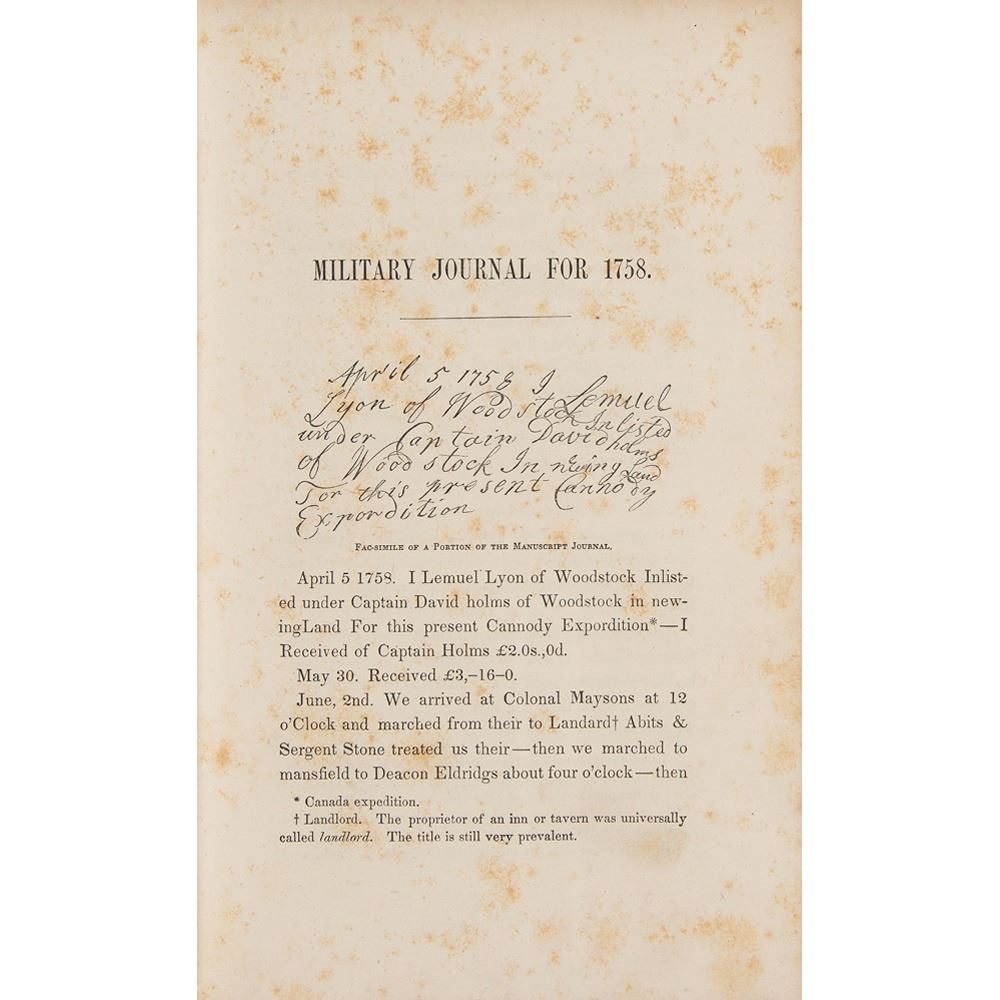 MILITARY JOURNAL FOR 1758.
April 5 1758 I Lemuel
Lyon of Woodstock Inlisted
under Captain David holms
of Woodstock In newingLand
For this present Cannody
Expordition
FAC-SIMILE OF A PORTION OF THE MANUSCRIPT JOURNAL.
April 5 1758. I Lemuel Lyon of Woodstock Inlist-
ed under Captain David holms of Woodstock in new-
ingLand For this present Cannody Expordition*—I
Received of Captain Holms £2.0s.,0d.
May 30. Received £3,-16-0.
June, 2nd. We arrived at Colonal Maysons at 12
o'Clock and marched from their to Landard† Abits &
Sergent Stone treated us their—then we marched to
mansfield to Deacon Eldridgs about four o'clock—then
* Canada expedition.
† Landlord. The proprietor of an inn or tavern was universally
called landlord. The title is still very prevalent.